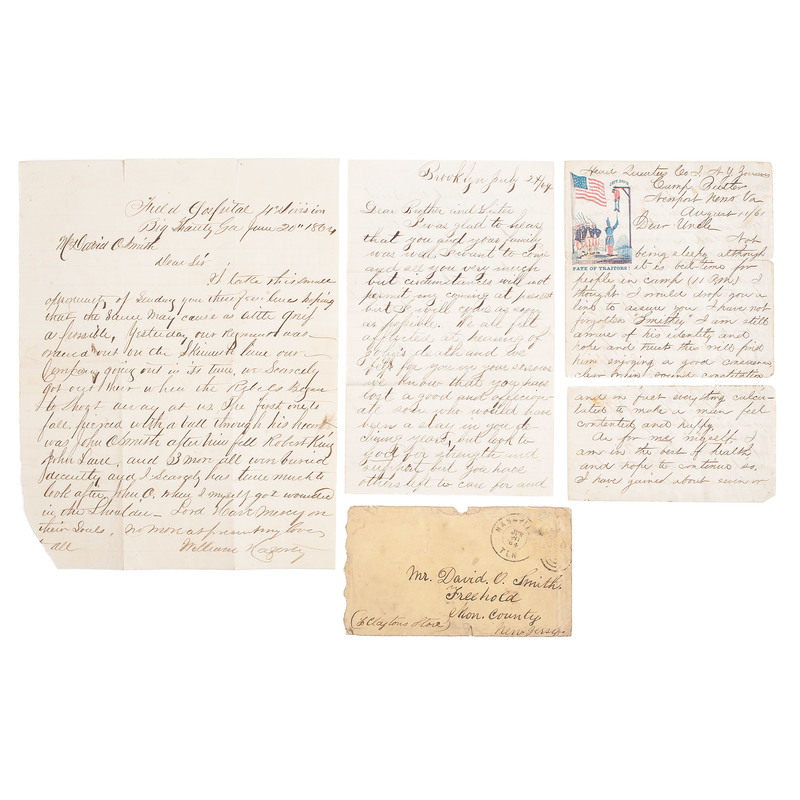 Field Hospital 4" Division
Big Shanty Ga June 20th 1864
Mr David O Smith
Dear Sir
I take this small
opportunity of sending you these few lines hoping
that the same may cause as little grief
as possible, Yesterday our Regiment was
ordered out on the Skirmish line our
Company going out in its turn, we Scarcely
got out their when the Rebels Began
to Shoot away at us The first one to
fall pierced with a ball through his heart
was John O Smith after him fell Robert
John Lane, and 3 more all were buried
decently and I Scarcely had time much to
look after John O, when I myself got wounded
in the Shoulder— Lord Have Mercy on
their Souls, no more at present my love
t all William
Brooklyn July 24/64
Dear Brother and Sister
I was glad to hear
that you and your family
was well, I want to come
and see you very much
but circumstances will not
permit my coming at present
but I will come as soon
as possible. We all fell
afflicted at hearing of
John's death and we
feel for you in your distress
we know that you have
lost a good and affection-
ate son who would have
been a stay in you de-
clining years, but look to
god for strength and
support but you have
others left to care for and
Head Quarters Co I. N Y Zouaves
Camp Butler
Newport News Va
August 1/61
Dear Uncle
Not
being sleepy although
it is bed time for
people in camp (11 P.M.) I
thought I would drop you a
line to assure you I have not
forgotten I am still
aware of his identity and
hole and trust this will find
him enjoying a good
clear brain, sound constitution
JEFF DAVIS
FATE OF TRAITORS!
and in fact everything calcu-
lated to make a man feel
contented and happy.
As for me, myself I
am in the best of health,
and hope to continue so.
I have gained about seven or
NASHVILLE
TEN
Mr. David. O. Smith.
Freehold
Mon. County
New Jersey.
(Claytons Store)